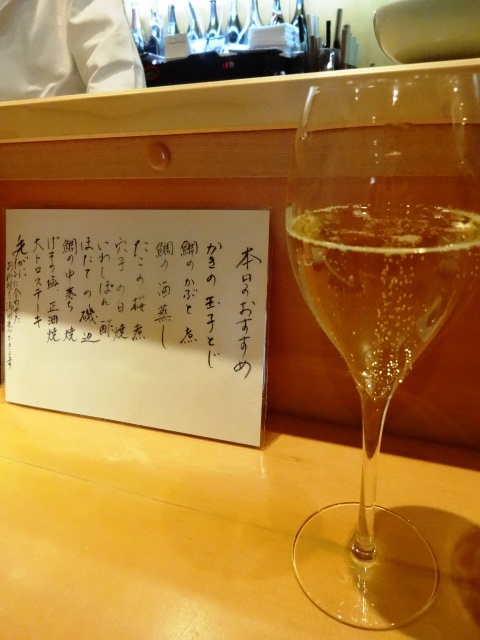 本日のおすすめ
かきの玉子とじ
鯛のかぶと煮
鯛の酒蒸し
たこの桜煮
穴子の白焼
いわしぽん酢
ほたての磯辺
鯛の中落ち焼
げその塩 正油焼
大トロステーキ